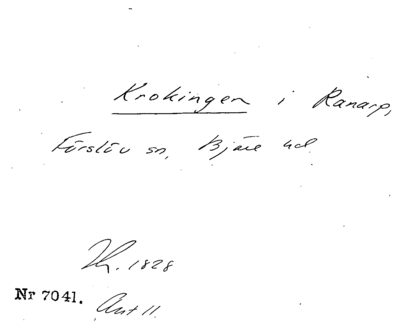 Krokingen i Ranarp,
Förslöv sn, Bjäre hd
Th. 1828
Nr 7041.
Ant 11.